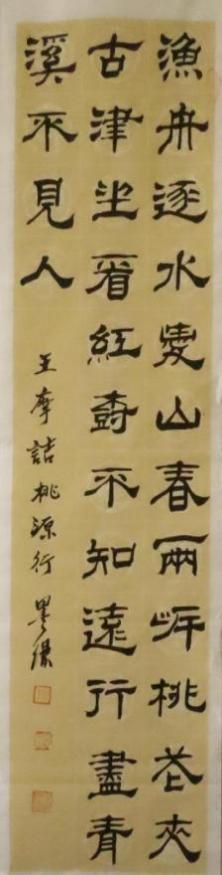 漁舟逐水愛山春兩岸桃花夾
古津坐看紅樹不知遠行盡青
溪不見人
王摩詰桃源行